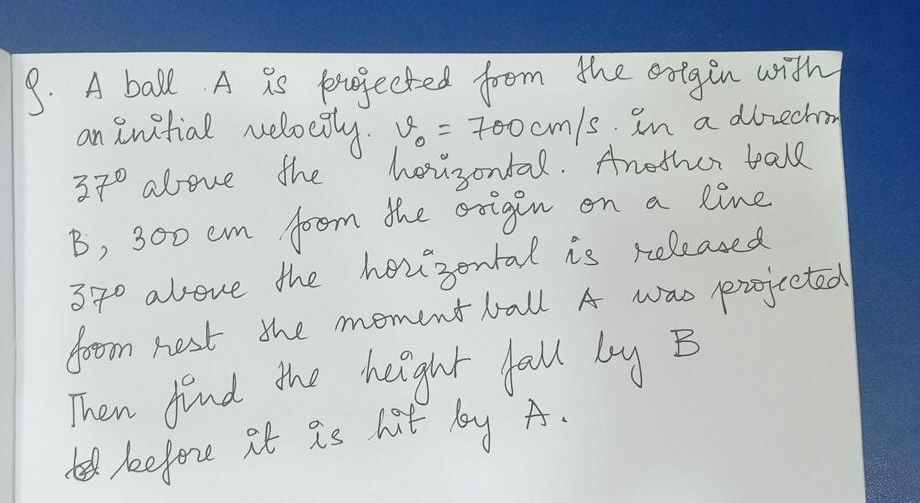 Q. A ball A is projected from the origin with
an initial velocity. v₀ = 700cm/s. in a direction
37° above the horizontal. Another ball
B, 300 cm from the origin on a line
37° above the horizontal is released
from rest the moment ball A was projected
Then find the height fall by B
before it is hit by A.